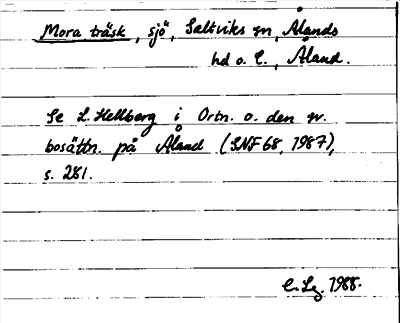 Mora träsk, sjö, Saltviks sn, Ålands
hd o. l., Åland.
Se L. Hellberg i Ortn. o. den n.
bosättn. på Åland (SNF 68, 1987),
s. 281.
1988.